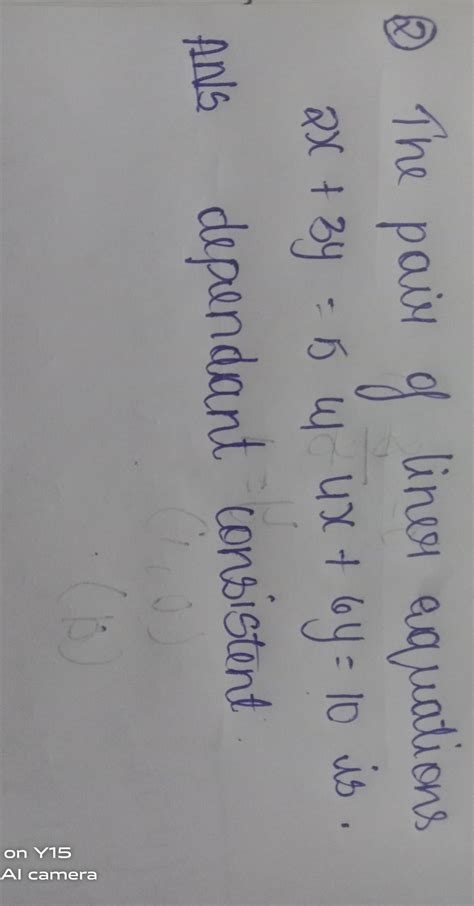 ② The pair of liner equations
2x + 3y = 5 4 4x + 6y = 10 is.
ANS dependant consistent.
on Y15
AI camera